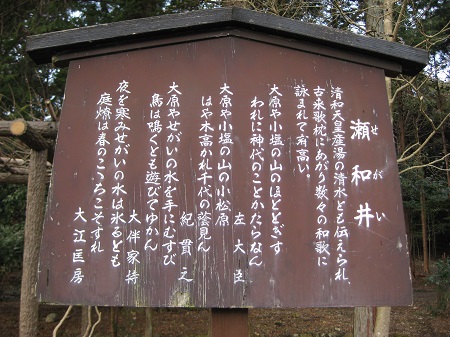 瀬和井
せがい
清和天皇産湯の清水とも伝えられ
古来歌枕にあがり数々の和歌に
詠まれて有高い。
大原や小塩の山のほとゝぎす
われに神代のことかたらなん
左大臣
大原や小塩の山の小松原
はや木高かれ千代の蔭見ん
紀貫之
大原やせがいの水を手にむすび
鳥は鳴くとも遊びてゆかん
大伴家持
夜を寒みせがいの水は氷るとも
庭燎は春のこゝろこそすれ
大江匡房